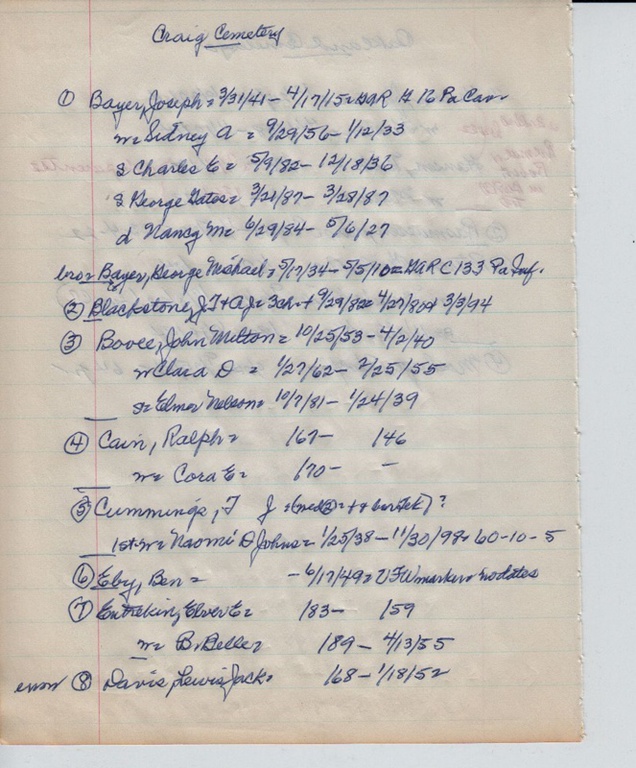 Craig Cemetery
① Bayer, Joseph = 3/31/41 - 4/17/15 = GAR H 16 Pa Cav
w = Sidney A = 9/29/56 - 1/12/33
s Charles E = 5/9/82 - 12/18/36
s George Gates = 3/21/87 - 3/28/87
d Nancy M = 6/29/84 - 5/6/27
bro = Bayer, George Michael = 5/17/34 - 5/5/10 = GAR C 133 Pa Inf.
② Blackstone, J T + A J = 3 ch = + 9/29/82 = 4/27/80 + 3/3/94
③ Booee, John Milton = 10/25/53 - 4/2/40
w Clara D = 1/27/62 - 2/25/55
s = Elmer Nelson = 10/7/81 - 1/24/39
④ Cain, Ralph = 167 - 146
w = Cora E = 170 - -
⑤ Cummings, T J = ?
1st w = Naomi D Johns = 1/25/38 - 11/30/98 = 60-10-5
⑥ Eby, Ben = - 6/17/49 = VFW marker = no dates
⑦ Entrekin, Elver E = 183 - 159
w = B. Belle = 189 - 4/13/55
⑧ Davis, Lewis, Jack = 168 - 1/18/52